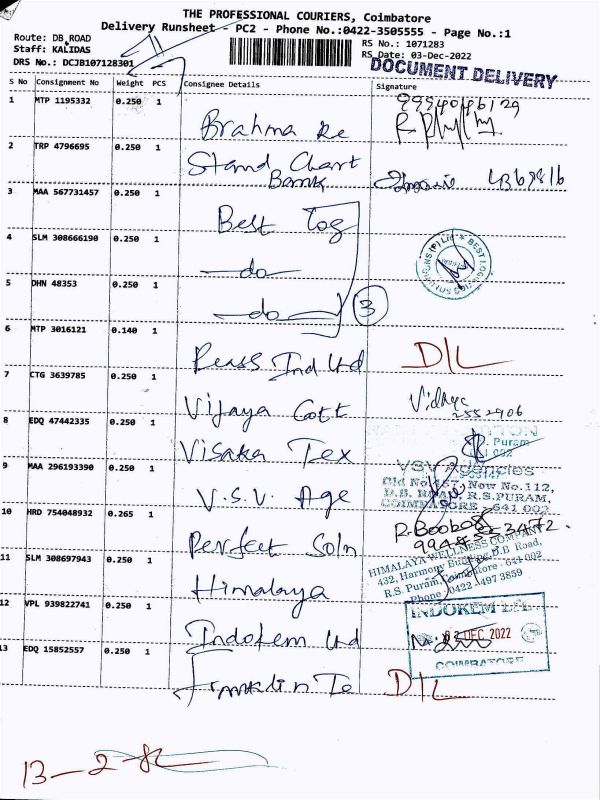 THE PROFESSIONAL COURIERS, Coimbatore
Delivery Runsheet - PC2 - Phone No.:0422-3505555 - Page No.:1
Route: DB ROAD
RS No.: 1071283
Staff: KALIDAS
RS Date: 03-Dec-2022
DRS No.: DCJB107128301
DOCUMENT DELIVERY
S No Consignment No Weight PCS Consignee Details Signature
1 MTP 1195332 0.250 1 Brahma Re
2 TRP 4796695 0.250 1 Stand Chart Bank
3 MAA 567731457 0.250 1 Best Log
4 SLM 308666190 0.250 1 —do—
5 DHN 48353 0.250 1 —do— 3
6 MTP 3016121 0.140 1 Ind Ltd D/L
7 CTG 3639785 0.250 1 Vijaya Cott Vidhya 2552906
8 EDQ 47442335 0.250 1 Visaka Tex
9 MAA 296193390 0.250 1 V.S.V. Age
VSV Agencies
Old No.167, Now No.112,
D.B. ROAD, R.S.PURAM,
COIMBATORE - 641 002
10 HRD 754048932 0.265 1 Perfect Soln
11 SLM 308697943 0.250 1 Himalaya
HIMALAYA WELLNESS COMPANY
432, Harmony D.B Road,
R.S. Puram, Coimbatore - 641 002
Phone : 0422 - 497 3859
12 VPL 939822741 0.250 1 Indokem Ltd
INDOKEM LTD.
02 DEC 2022
COIMBATORE
13 EDQ 15852557 0.250 1 Franklin Te D/L
13 - 2 -